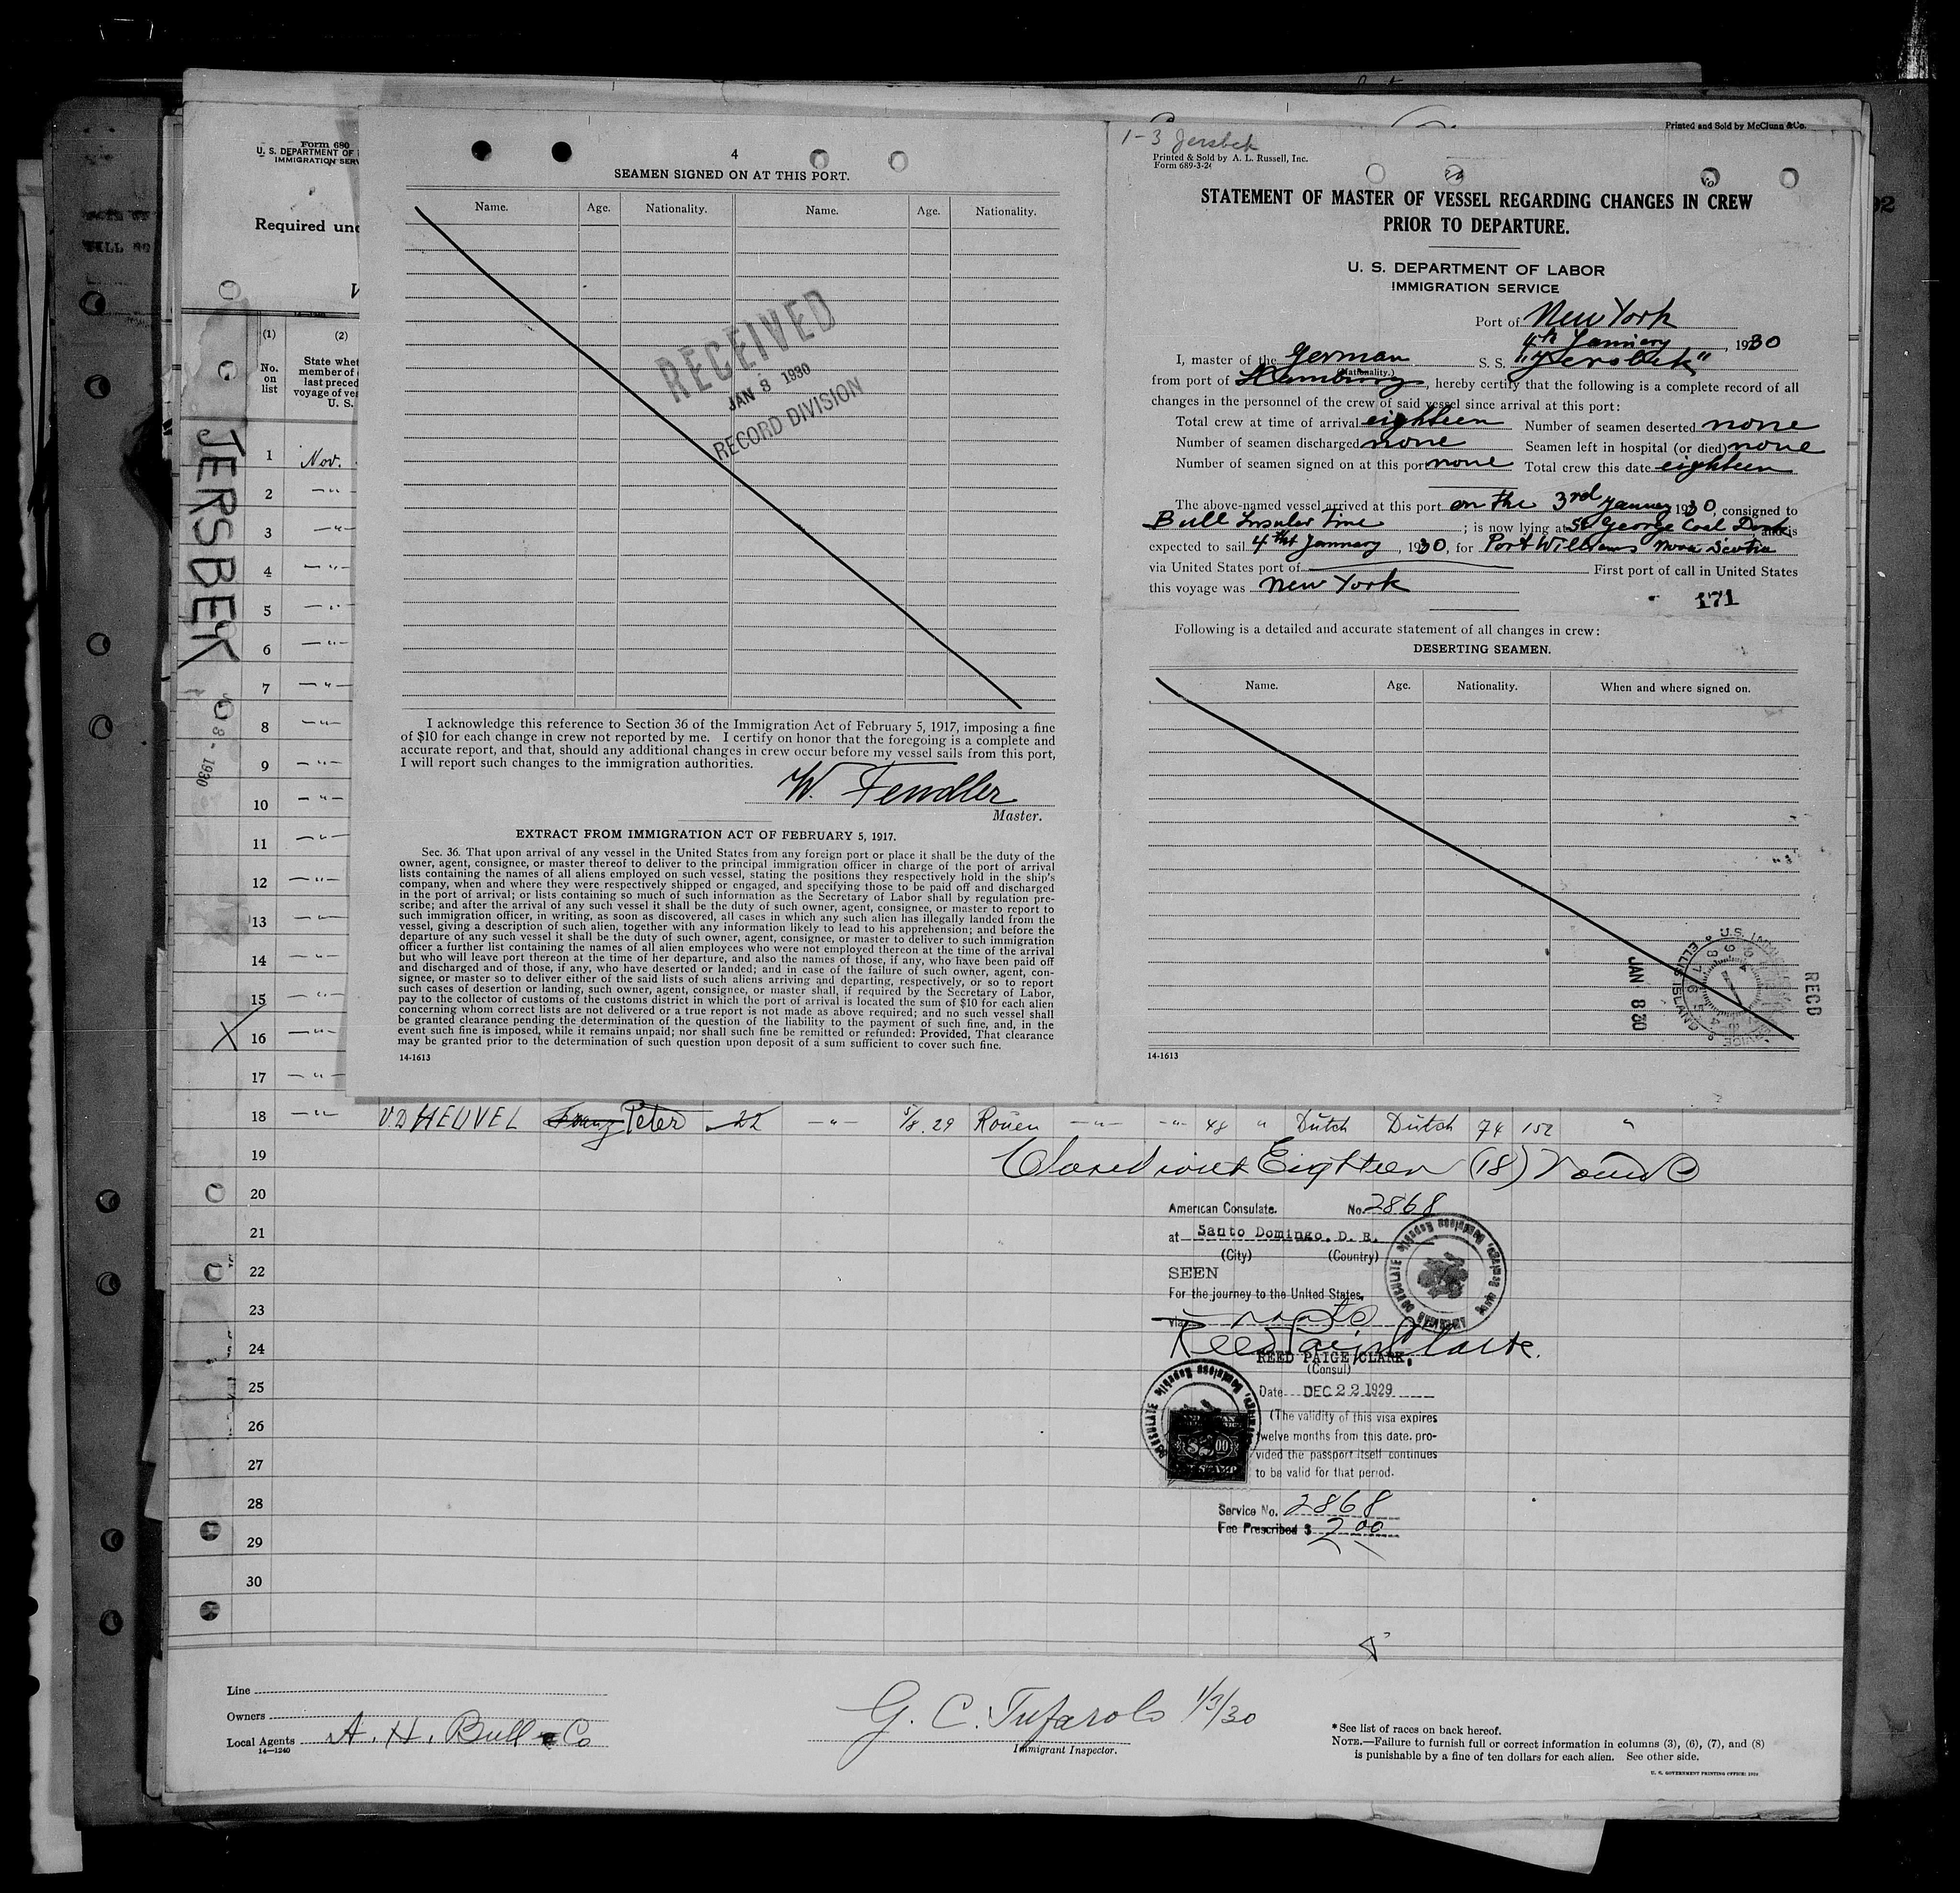 Form 680
U. S. DEPARTMENT OF
IMMIGRATION SERV
Required und
(1)
(2)
No.
on
list
State whet
member of
last preced
voyage of ves
U. S.
JERSBEK
8 - 1930
1 Nov.
2 —"—
3 —"—
4 —"—
5 —"—
6 —"—
7 —"—
8 —"—
9 —"—
10 —"—
11 —"—
12 —"—
13 —"—
14 —"—
15 —"—
16 —"—
17 —"—
4
SEAMEN SIGNED ON AT THIS PORT.
Name. Age. Nationality. Name. Age. Nationality.
RECEIVED
JAN 8 1930
RECORD DIVISION
I acknowledge this reference to Section 36 of the Immigration Act of February 5, 1917, imposing a fine
of $10 for each change in crew not reported by me. I certify on honor that the foregoing is a complete and
accurate report, and that, should any additional changes in crew occur before my vessel sails from this port,
I will report such changes to the immigration authorities.
W. Fendler
Master.
EXTRACT FROM IMMIGRATION ACT OF FEBRUARY 5, 1917.
Sec. 36. That upon arrival of any vessel in the United States from any foreign port or place it shall be the duty of the
owner, agent, consignee, or master thereof to deliver to the principal immigration officer in charge of the port of arrival
lists containing the names of all aliens employed on such vessel, stating the positions they respectively hold in the ship's
company, when and where they were respectively shipped or engaged, and specifying those to be paid off and discharged
in the port of arrival; or lists containing so much of such information as the Secretary of Labor shall by regulation pre-
scribe; and after the arrival of any such vessel it shall be the duty of such owner, agent, consignee, or master to report to
such immigration officer, in writing, as soon as discovered, all cases in which any such alien has illegally landed from the
vessel, giving a description of such alien, together with any information likely to lead to his apprehension; and before the
departure of any such vessel it shall be the duty of such owner, agent, consignee, or master to deliver to such immigration
officer a further list containing the names of all alien employees who were not employed thereon at the time of the arrival
but who will leave port thereon at the time of her departure, and also the names of those, if any, who have been paid off
and discharged and of those, if any, who have deserted or landed; and in case of the failure of such owner, agent, con-
signee, or master so to deliver either of the said lists of such aliens arriving and departing, respectively, or so to report
such cases of desertion or landing, such owner, agent, consignee, or master shall, if required by the Secretary of Labor,
pay to the collector of customs of the customs district in which the port of arrival is located the sum of $10 for each alien
concerning whom correct lists are not delivered or a true report is not made as above required; and no such vessel shall
be granted clearance pending the determination of the question of the liability to the payment of such fine, and, in the
event such fine is imposed, while it remains unpaid; nor shall such fine be remitted or refunded: Provided, That clearance
may be granted prior to the determination of such question upon deposit of a sum sufficient to cover such fine.
14-1613
Printed and Sold by McClunn &Co.
1-3 Jersbek
Printed & Sold by A. L. Russell, Inc.
Form 689-3-24
STATEMENT OF MASTER OF VESSEL REGARDING CHANGES IN CREW
PRIOR TO DEPARTURE.
U. S. DEPARTMENT OF LABOR
IMMIGRATION SERVICE
Port of New York
4th January, 1930
I, master of the German S. S. "Jersbek"
(Nationality.)
from port of Hamburg, hereby certify that the following is a complete record of all
changes in the personnel of the crew of said vessel since arrival at this port:
Total crew at time of arrival eighteen Number of seamen deserted none
Number of seamen discharged none Seamen left in hospital (or died) none
Number of seamen signed on at this port none Total crew this date eighteen
The above-named vessel arrived at this port on the 3rd January 1930, consigned to
Bull Insular Line; is now lying at St George Coal Dock, and is
expected to sail 4th January, 1930, for Port Williams Nova Scotia
via United States port of First port of call in United States
this voyage was New York
171
Following is a detailed and accurate statement of all changes in crew:
DESERTING SEAMEN.
Name. Age. Nationality. When and where signed on.
U.S. IMMIGRATION SERVICE ELLIS ISLAND
REC'D
JAN 8 30
14-1613
18 —"— V.D HEUVEL Franz Peter 22 —"— 5/8.29 Rouen —"— —"— 48 " Dutch Dutch 74 152 "
19 Closed with Eighteen (18) names
20
21
22
23
24
25
26
27
28
29
30
American Consulate. No. 2868
at Santo Domingo, D. R.
(City) (Country)
SEEN
For the journey to the United States,
via
Reed Paige Clark.
REED PAIGE CLARK,
(Consul)
Date DEC 22 1929
(The validity of this visa expires
twelve months from this date, pro-
vided the passport itself continues
to be valid for that period.
Service No. 2868
Fee Prescribed $ 2.00
Line
Owners
Local Agents A. H. Bull & Co
14—1240
G. C. Tufarolo 1/3/30
Immigrant Inspector.
* See list of races on back hereof.
NOTE.—Failure to furnish full or correct information in columns (3), (6), (7), and (8)
is punishable by a fine of ten dollars for each alien. See other side.
U. S. GOVERNMENT PRINTING OFFICE: